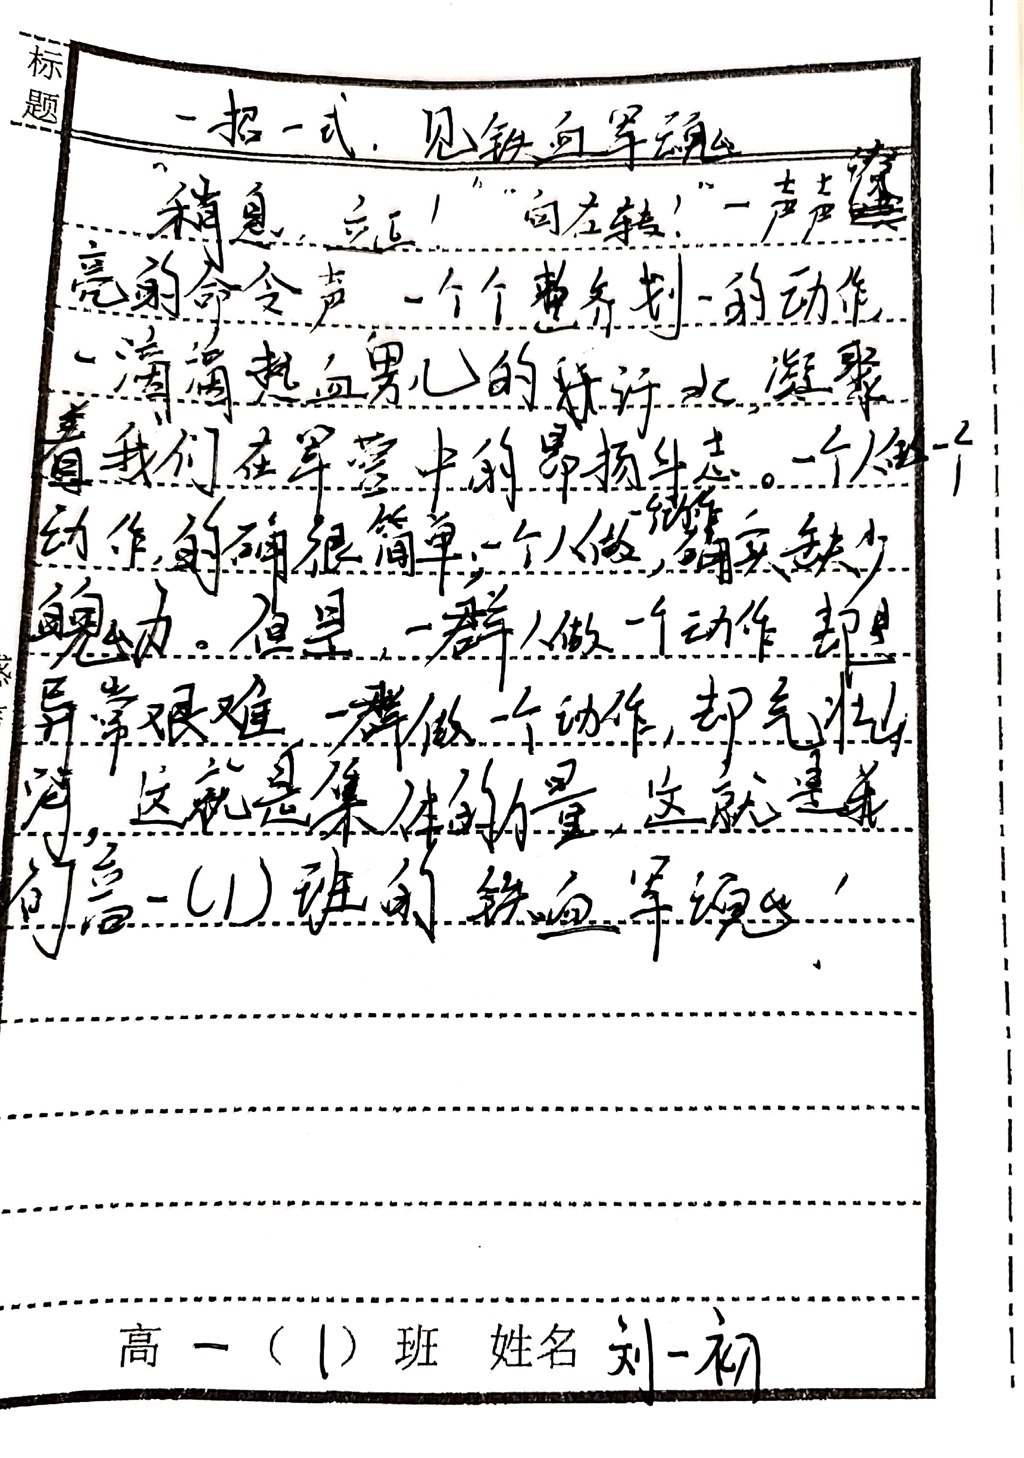 标题
一招一式，见铁血军魂
“稍息，立正！”“向左转！”一声声嘹
亮的命令声 一个个整齐划一的动作，
一滴滴热血男儿的汗水，凝聚
着我们在军营中的昂扬斗志。一个人做一个
动作，的确很简单，一个人做一个动作，确实缺少
魄力。但是，一群人做一个动作 却是
异常艰难，一群做一个动作，却气壮山
河，这就是集体的力量，这就是我
们高一（1）班的铁血军魂！
高一（1）班 姓名 刘一初